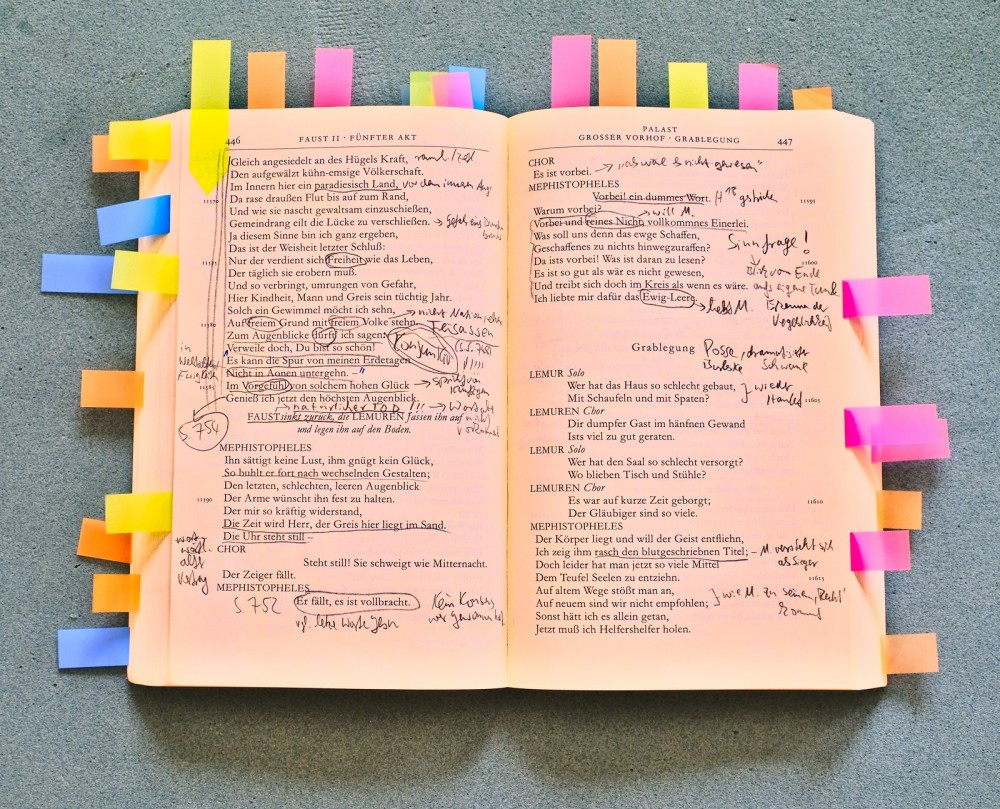 446
FAUST II · FÜNFTER AKT
Gleich angesiedelt an des Hügels Kraft,
Den aufgewälzt kühn-emsige Völkerschaft.
Im Innern hier ein paradiesisch Land, vor dem inneren Auge
11570 Da rase draußen Flut bis auf zum Rand,
Und wie sie nascht gewaltsam einzuschießen,
Gemeindrang eilt die Lücke zu verschließen.
Ja diesem Sinne bin ich ganz ergeben,
Das ist der Weisheit letzter Schluß:
11575 Nur der verdient sich Freiheit wie das Leben,
Der täglich sie erobern muß.
Und so verbringt, umrungen von Gefahr,
Hier Kindheit, Mann und Greis sein tüchtig Jahr.
Solch ein Gewimmel möcht ich sehn,
11580 Auf freiem Grund mit freiem Volke stehn.
Zum Augenblicke dürft ich sagen: Konjunktiv
Verweile doch, Du bist so schön!
Es kann die Spur von meinen Erdetagen
Nicht in Äonen untergehn. –
11585 Im Vorgefühl von solchem hohen Glück
Genieß ich jetzt den höchsten Augenblick.
natürlicher Tod !!!
FAUST sinkt zurück, die LEMUREN fassen ihn auf
und legen ihn auf den Boden.
S. 754
MEPHISTOPHELES
Ihn sättigt keine Lust, ihm gnügt kein Glück,
So buhlt er fort nach wechselnden Gestalten;
Den letzten, schlechten, leeren Augenblick
11590 Der Arme wünscht ihn fest zu halten.
Der mir so kräftig widerstand,
Die Zeit wird Herr, der Greis hier liegt im Sand.
Die Uhr steht still –
CHOR
Steht still! Sie schweigt wie Mitternacht.
Der Zeiger fällt.
MEPHISTOPHELES
S. 752 Er fällt, es ist vollbracht.
PALAST
GROSSER VORHOF · GRABLEGUNG
447
CHOR
Es ist vorbei. → "als wär es nicht gewesen"
MEPHISTOPHELES
Vorbei! ein dummes Wort. 11595
Warum vorbei? → will M.
Vorbei und reines Nicht, vollkommnes Einerlei.
Was soll uns denn das ewge Schaffen,
Geschaffenes zu nichts hinwegzuraffen? Sinnfrage!
Da ists vorbei! Was ist daran zu lesen? 11600
Es ist so gut als wär es nicht gewesen, Blick vom Ende
Und treibt sich doch im Kreis als wenn es wäre.
Ich liebte mir dafür das Ewig-Leere. → liebt M.
Grablegung Posse, dramatischer
Burleske Schwank
LEMUR Solo
Wer hat das Haus so schlecht gebaut, } wieder
Mit Schaufeln und mit Spaten? Hamlet 11605
LEMUREN Chor
Dir dumpfer Gast im hänfnen Gewand
Ists viel zu gut geraten.
LEMUR Solo
Wer hat den Saal so schlecht versorgt?
Wo blieben Tisch und Stühle?
LEMUREN Chor
Es war auf kurze Zeit geborgt; 11610
Der Gläubiger sind so viele.
MEPHISTOPHELES
Der Körper liegt und will der Geist entfliehn,
Ich zeig ihm rasch den blutgeschriebnen Titel; – M. versteht sich
als Sieger
Doch leider hat man jetzt so viele Mittel
Dem Teufel Seelen zu entziehn. 11615
Auf altem Wege stößt man an,
Auf neuem sind wir nicht empfohlen; } wie M. zu seinem "Recht"
kommt
Sonst hätt ich es allein getan,
Jetzt muß ich Helfershelfer holen.